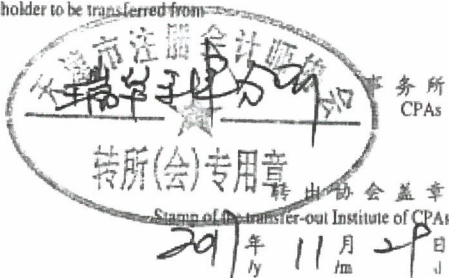 holder to be transferred from
天津市注册会计师协会
事务所
CPAs
转所(会)专用章
转出协会盖章
Stamp of the transfer-out Institute of CPAs
2017年11月29日
/y /m /d